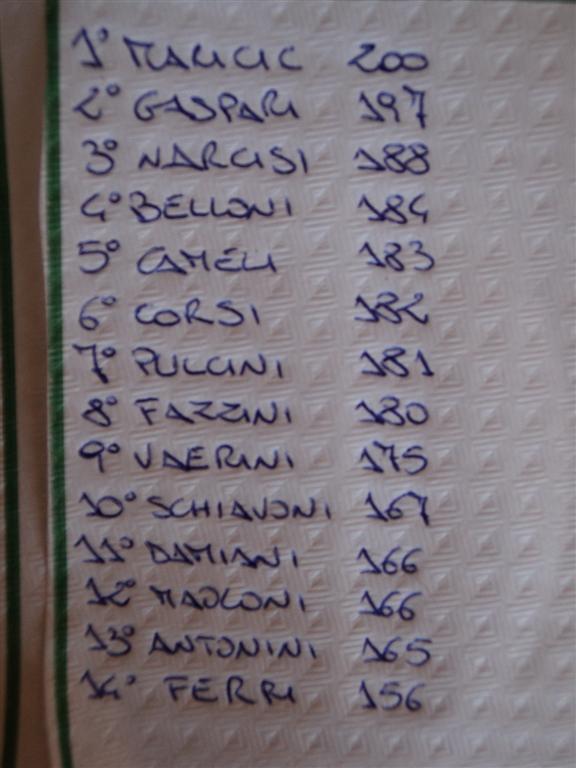 1° MALICIC 200
2° GASPARI 197
3° NARCISI 188
4° BELLONI 184
5° CAMELI 183
6° CORSI 182
7° PULCINI 181
8° FAZZINI 180
9° VAERINI 175
10° SCHIAVONI 167
11° DAMIANI 166
12° 166
13° ANTONINI 165
14° FERRI 156